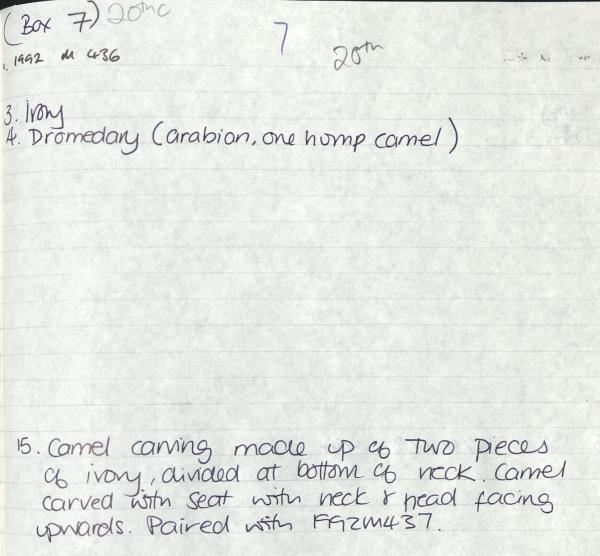 (Box 7) 20thc
7
20th
1. 1992 M 436
3. Ivory
4. Dromedary (arabian, one hump camel)
15. Camel carving made up of two pieces
of ivory, divided at bottom of neck. Camel
carved with seat with neck & head facing
upwards. Paired with 1992M437.